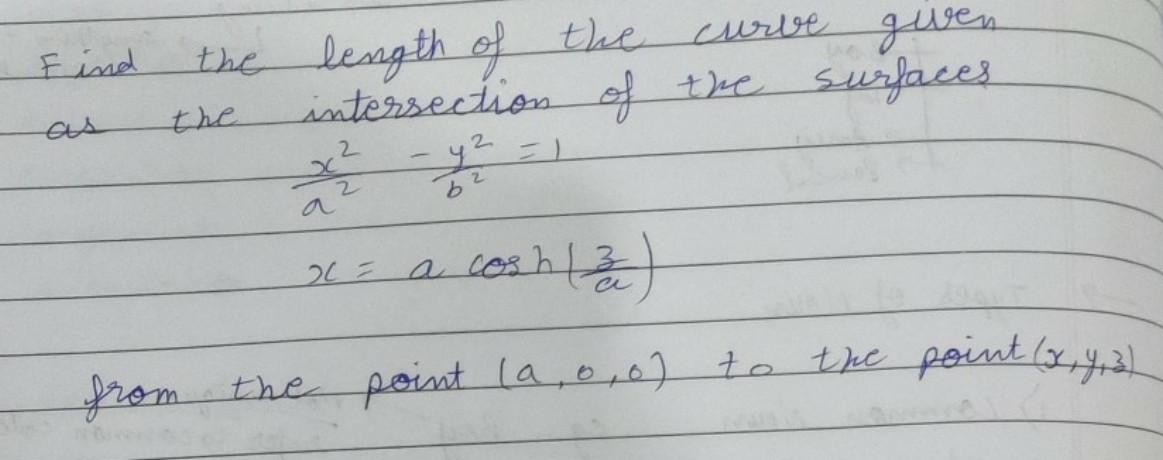 Find the length of the curve given
as the intersection of the surfaces
x²/a² - y²/b² = 1
x = a cosh(z/a)
from the point (a,0,0) to the point (x,y,z)